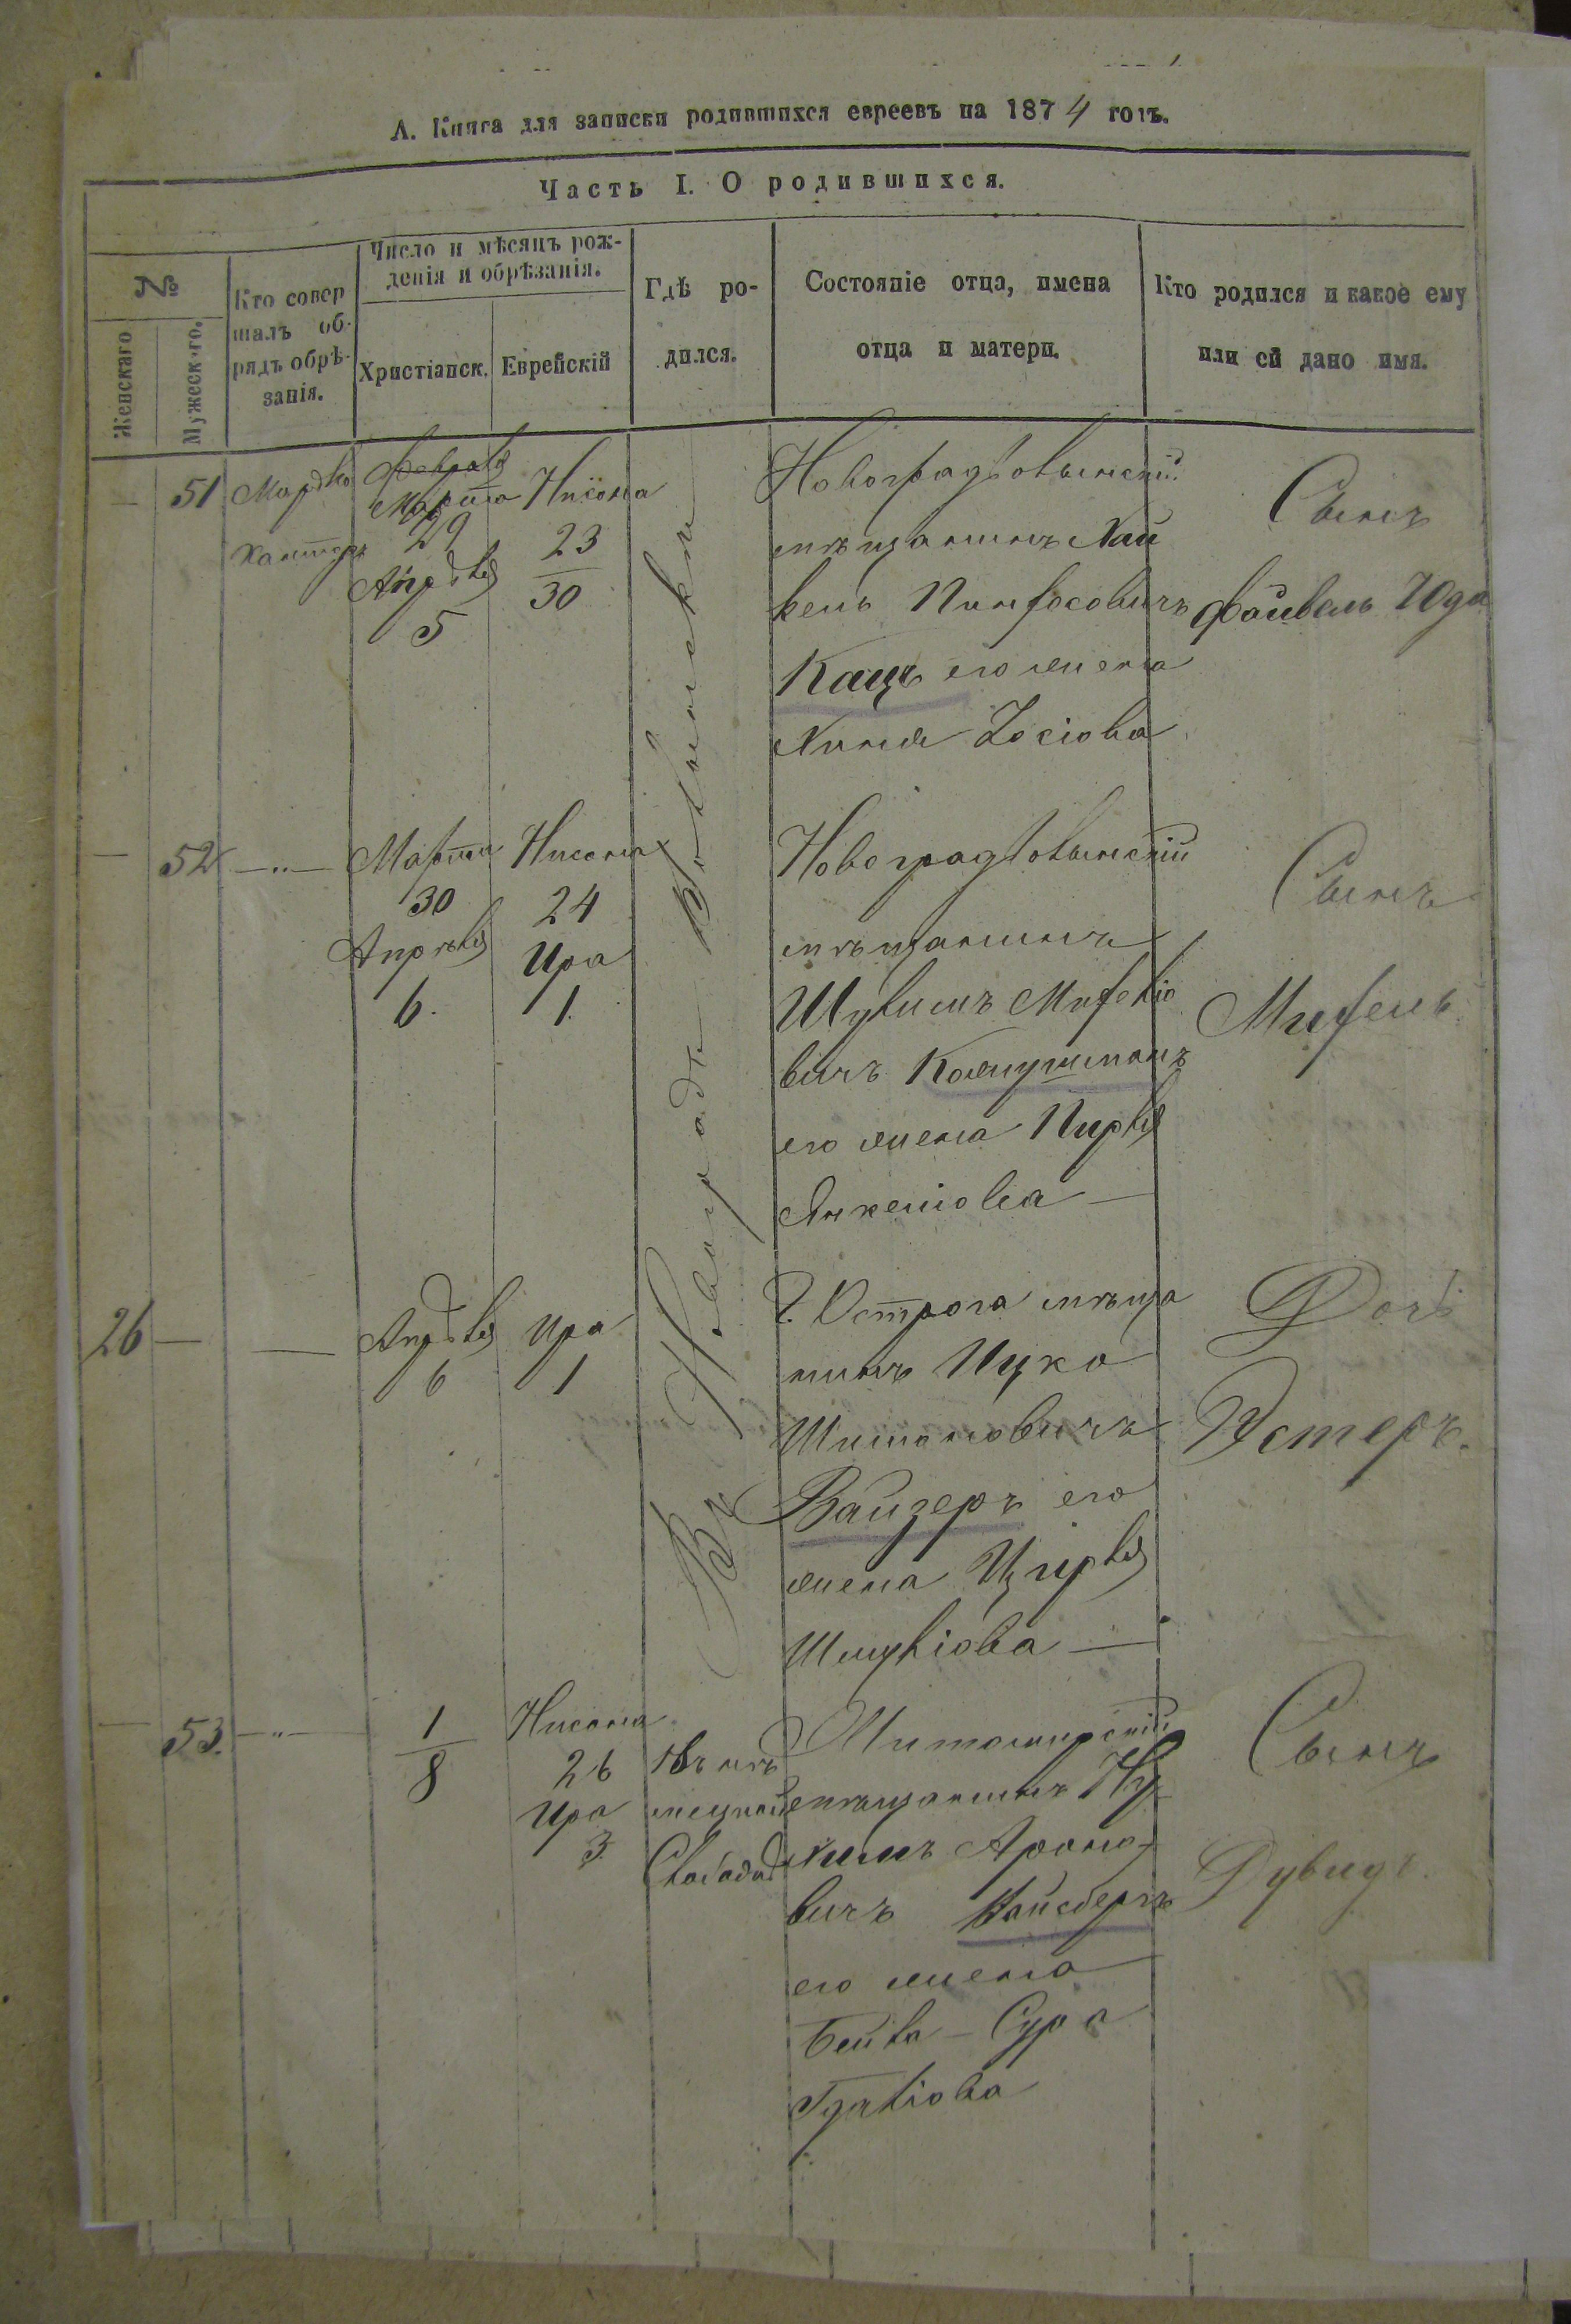 А. Книга для записки родившихся евреевъ на 1874 годъ.
Часть I. О родившихся.
№
Женскаго
Мужеск-го.
Кто совер
шалъ об-
рядъ обрѣ-
занія.
Число и мѣсяцъ рож-
денія и обрѣзанія.
Христіанск.
Еврейскій
Гдѣ ро-
дился.
Состояніе отца, имена
отца и матери.
Кто родился и какое ему
или ей дано имя.
Въ Новоградѣ Волынскѣ
— 51
Мордко
Кантор
Февраля
Марта
29
Апрѣля
5
Нисона
23
30
Новоградволынскій
мѣщанинъ Хай
кель Пинхосовичъ
Кацъ его жена
Хиня Іосіова
Сынъ
Файвель Юда
— 52 —"—
Марта
30
Апрѣля
6.
Нисона
24
Ира
1.
Новоградволынскій
мѣщанинъ
Шулимъ Михеліо
вичъ Кожушманъ
его жена Пирля
Янкеліова —
Сынъ
Михель
26 — —
Апрѣля
6
Ира
1
Г. Острога мѣща
нинъ Ицко
Шимоновичъ
Вайзеръ его
жена Цирля
Шмуліова —
Дочь
Эстеръ.
— 53. —"—
1
8
Нисона
26
Ира
3.
Въ нѣ
мецкой
Слободѣ
Житомирскій
мѣщанинъ Ну
химъ Ароно-
вичъ Вайсбергъ
его жена
Бейла – Сура
Гдаліова
Сынъ
Дувидъ.